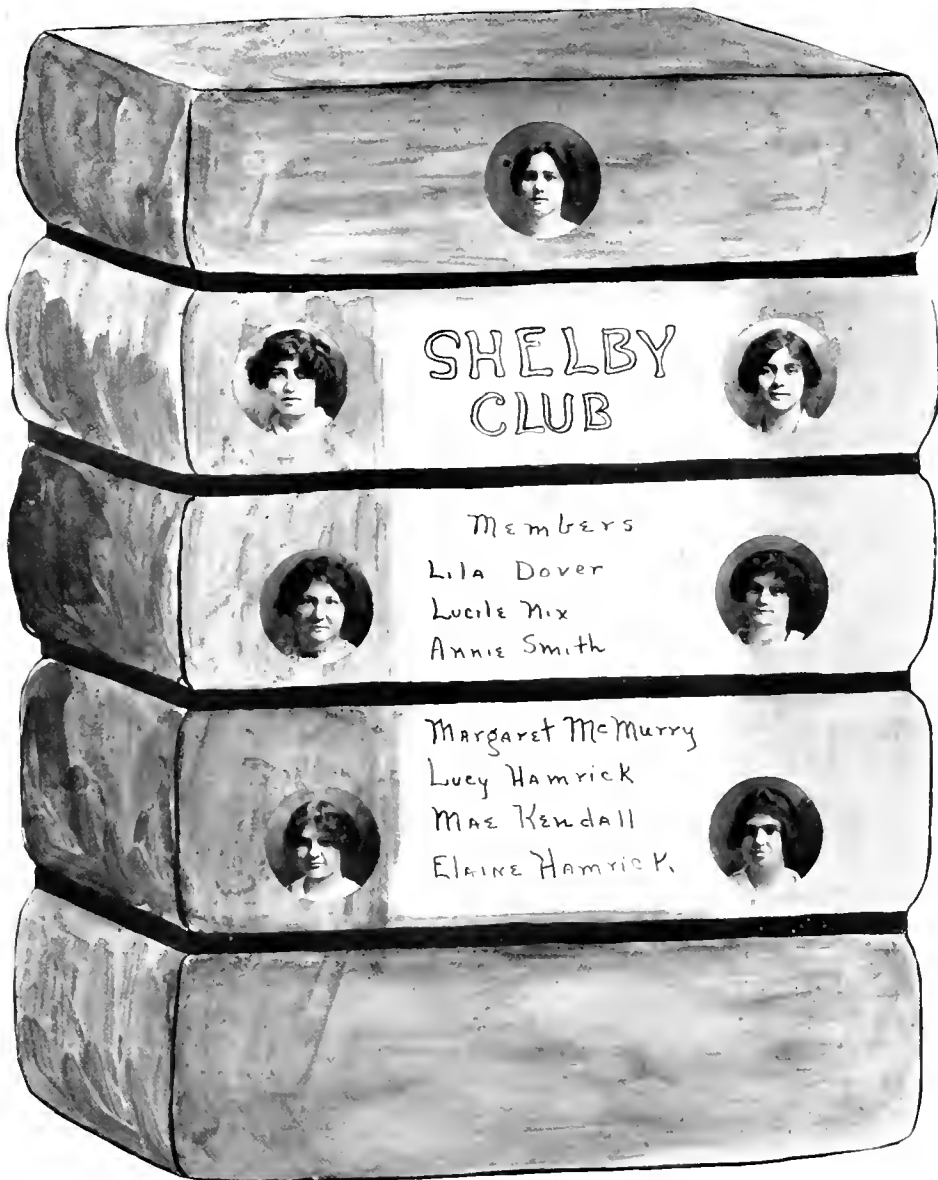 SHELBY
CLUB
Members
Lila Dover
Lucile Nix
Annie Smith
Margaret McMurry
Lucy Hamrick
Mae Kendall
Elaine Hamrick.